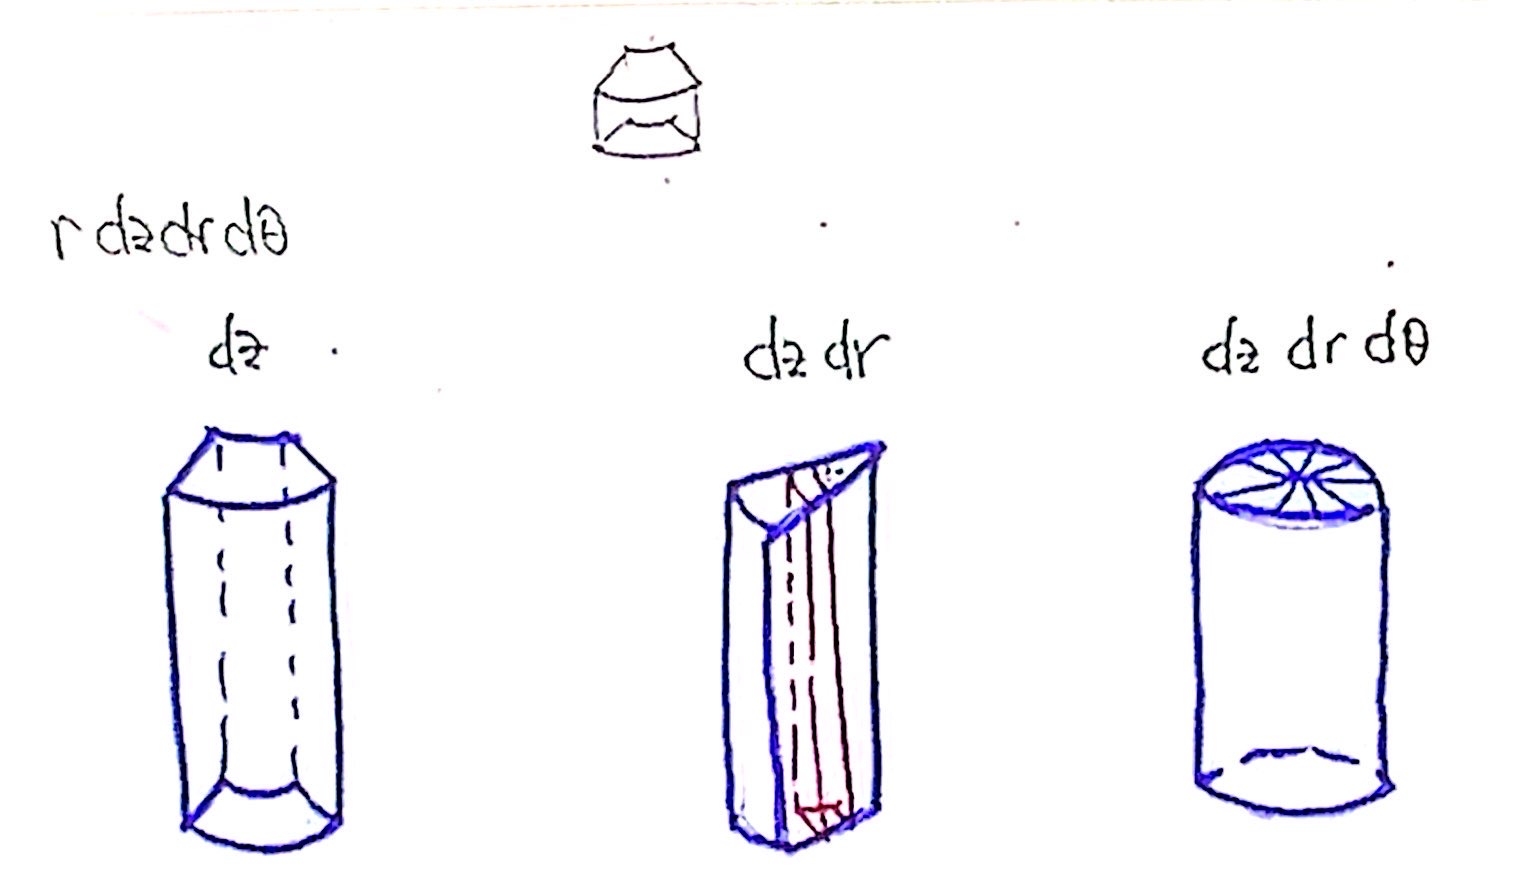 r dz dr dθ
dz
dz dr
dz dr dθ